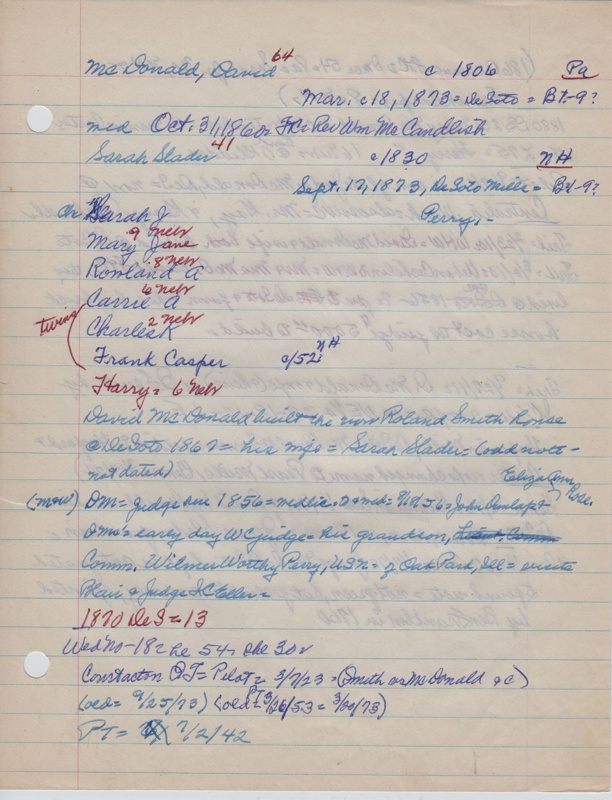 McDonald, David 64 c 1806 Pa
Mar. c18, 1873 = DeSoto = Bt-9?
md Oct. 31, 1860 = Rev Wm McCandlish
Sarah Slader 41 c/1830 NH
Sept. 17, 1873, DeSoto Mills = Bt-9?
Ch Sarah J Perry, -
Mary Jane 9 Nebr
Rowland A 8 Nebr
Carrie A 6 Nebr
twins Charles K 2 Nebr
Frank Casper c/52 NH
Harry = 6 Nebr
David McDonald built the now Roland Smith House
@ DeSoto 1867 = his wife = Sarah Slader = (odd note -
not dated) Eliza Ann
(mow) DM = Judge 1856 = John Dunlap &
DM's early day WC judge = His grandson,
Comm. Wilmer Worthy Perry, USN = of Oak Park, Ill = visits
Blair & Judge I C Eller =
1870 DeS = 13
Wed No-18 = he 54, she 30
QT = Pilot = 3/7/23 = (Smith or McDonald &c)
(old = 9/25/73) (old PT = 3/26/53 = 3/20/73)
PT = 7/2/42